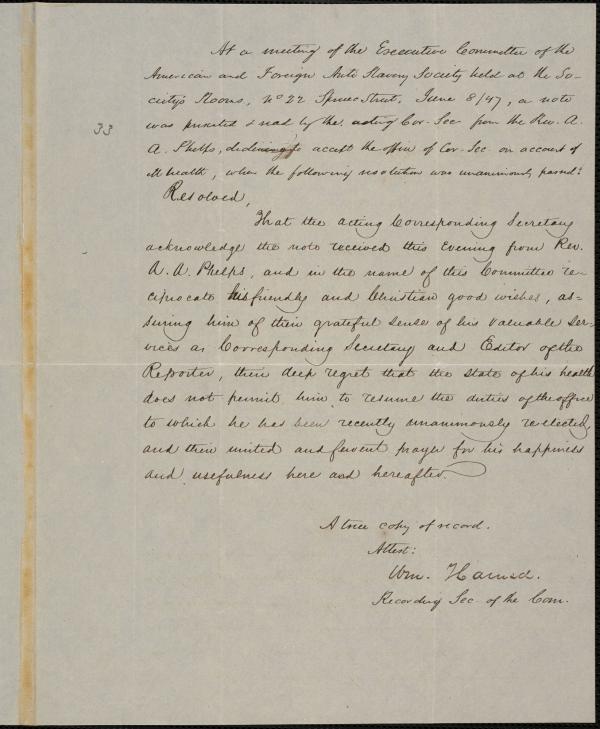 At a meeting of the Executive Committee of the
American and Foreign Anti Slavery Society held at the So-
ciety's Rooms, No 22 Spruce Street, June 8/47, a note
33
was presented & read by the acting Cor. Sec from the Rev. A.
A. Phelps, declining to accept the office of Cor. Sec on account of
ill health, when the following resolution was unanimously passed:
Resolved,
That the acting Corresponding Secretary
acknowledge the note received this Evening from Rev.
A. A. Phelps, and in the name of this Committee re-
ciprocate his friendly and Christian good wishes, as-
suring him of their grateful sense of his valuable ser-
vices as Corresponding Secretary and Editor of the
Reporter, their deep regret that the state of his health
does not permit him to resume the duties of the office
to which he has been recently unanimously re-elected,
and their united and fervent prayer for his happiness
and usefulness here and hereafter.
A true copy of record.
Attest:
Wm. Harned.
Recording Sec of the Com.